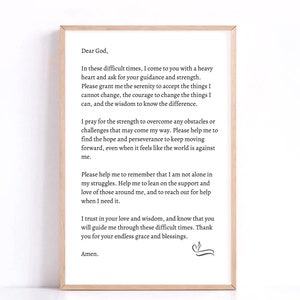 Dear God,
In these difficult times, I come to you with a heavy
heart and ask for your guidance and strength.
Please grant me the serenity to accept the things I
cannot change, the courage to change the things I
can, and the wisdom to know the difference.
I pray for the strength to overcome any obstacles or
challenges that may come my way. Please help me to
find the hope and perseverance to keep moving
forward, even when it feels like the world is against
me.
Please help me to remember that I am not alone in
my struggles. Help me to lean on the support and
love of those around me, and to reach out for help
when I need it.
I trust in your love and wisdom, and know that you
will guide me through these difficult times. Thank
you for your endless grace and blessings.
Amen.